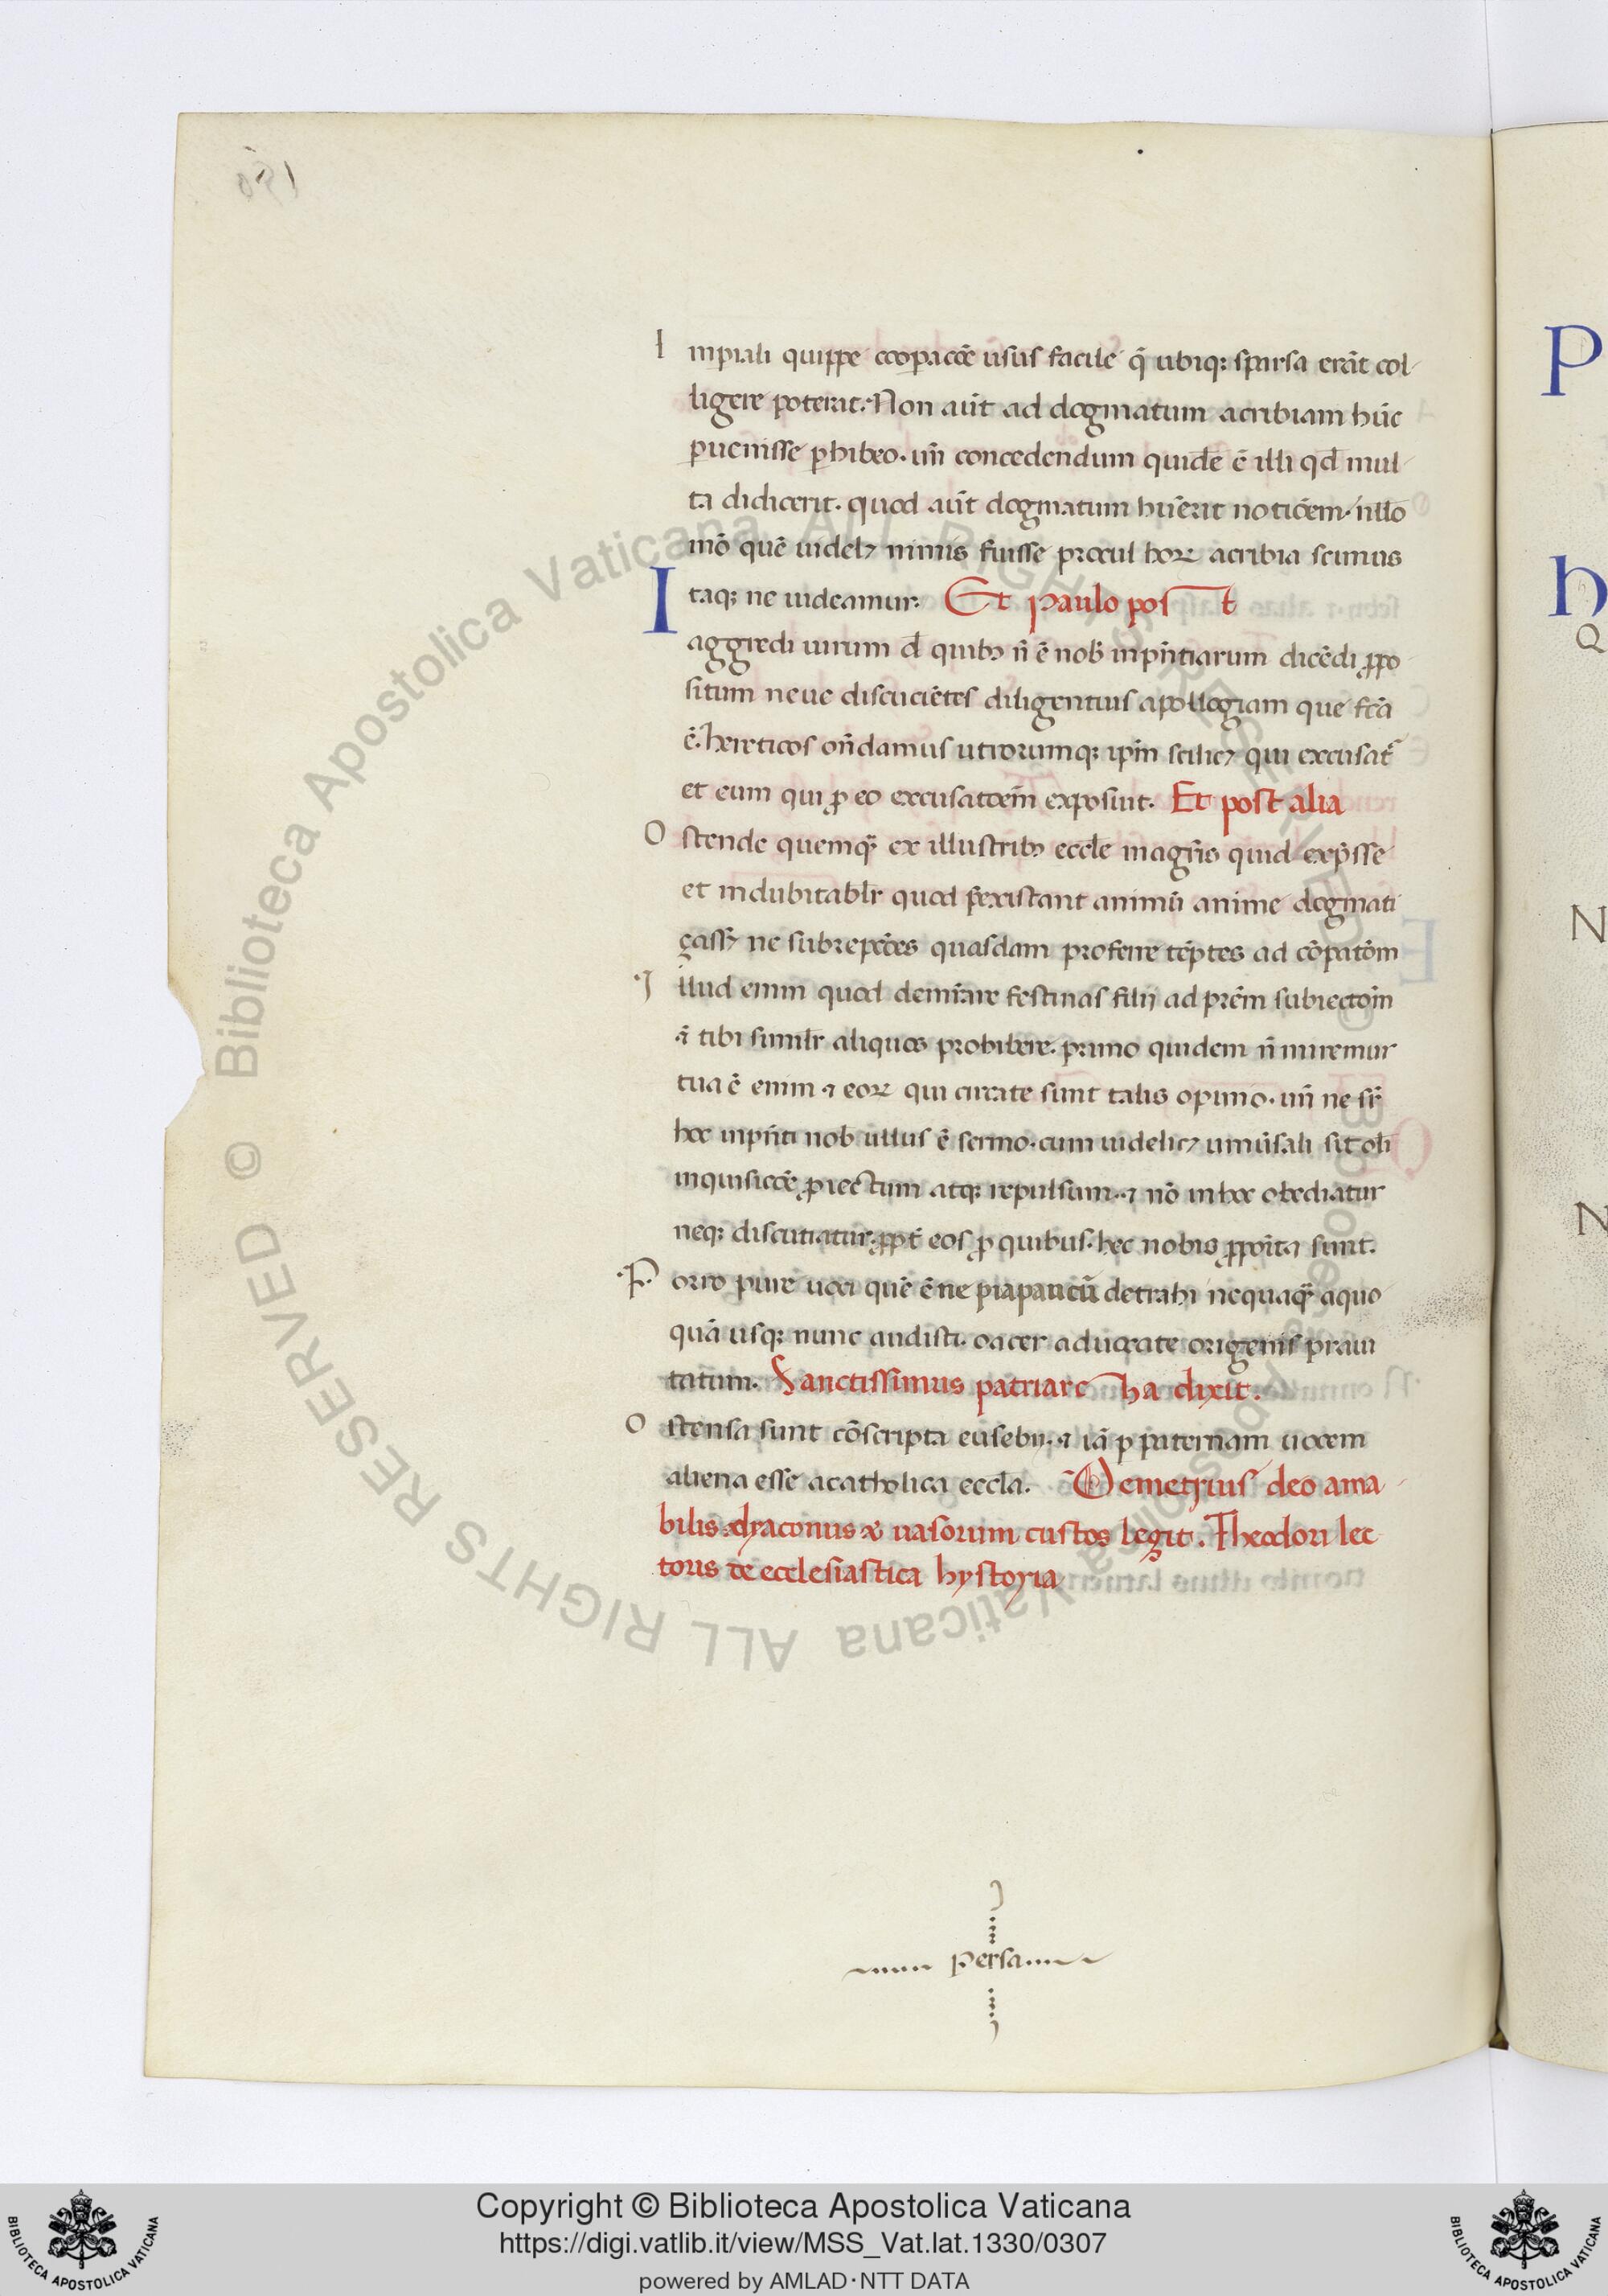 Impiali quippe coopacōe usus facile q̄ ubiq; sparsa erāt col-
ligere poterat. Non aūt ad dogmatum acribiam hūc
puenisse phibeo. un̄ concedendum quidē ē illi qd̄ mul-
ta didicerit. quod aūt dogmatum hūerit noticēm. nllo
mō quē uidelꝫ nimis fuisse procul horꝝ acribia scimus
Itaq; ne uideamur. Et paulo post
aggredi uirum d̄ quibꝫ n̄ ē nob̄ inpn̄tiarum dicēdi ꝓpo
situm neue discuciētes diligentius apollogiam que fcā
ē. hereticos on̄damus utrorumq; ip̄m scilicꝫ qui excusat᷑
et eum qui ꝓ eo excusatoem̄ exposuit. Et post alia
Ostende quemq̄ ex illustribꝫ eccl̄e magr̄is quid exp̄sse
et indubitabl̄r quod p̄existant animū anime dogmati
çassꝫ ne subrepcōes quasdam proferre tēptes ad cōpatōm
Illud enim quod demr̄are festinas filij ad prēm subiectoīn
⁊ tibi simil̄r aliquos prohibere. primo quidem n̄ miremur
tua ē enim ⁊ eorꝝ qui circate sunt talis opinio. un̄ ne sr̄
hoc inpn̄ti nob̄ ullus ē sermo. cum uidelicꝫ uniūsali sit oli
inquisicōe ꝓiectum atq; repulsum. ⁊ nō inhoc obediatur
neq; discutiatur. ꝓpt̄ eos ꝓ quibus. hec nobis ꝓpoīta sunt.
Porro pure uoci quē ē ne piapaucū detrahi nequaq̄ aquo
quā usq; nunc audisti. oacer aduocate origenis praui
tatum. Sanctissimus patriarcha dixit.
Ostensa sunt cōscripta eusebij. ⁊ iā p paternam uocem
aliena esse acatholica eccl̄a. Demetrius deo ama
bilis dyaconus ⁊ uasorum custos legit. Theodori lec
toris de ecclesiastica hystoria
Persa
Copyright © Biblioteca Apostolica Vaticana
https://digi.vatlib.it/view/MSS_Vat.lat.1330/0307
powered by AMLAD·NTT DATA
BIBLIOTECA APOSTOLICA VATICANA
BIBLIOTECA APOSTOLICA VATICANA
© Biblioteca Apostolica Vaticana ALL RIGHTS RESERVED
© Biblioteca Apostolica Vaticana ALL RIGHTS RESERVED
P
h
Q
N
N